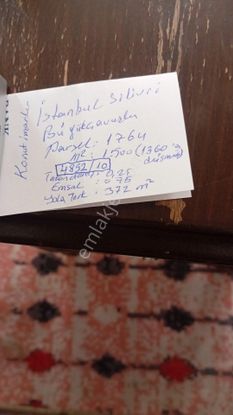 Konut imarlı
İstanbul Silivri
Büyükçavuşlu
Parsel: 1764
m²: 1500 (1360'a
düşmüş)
4892/10
0,25
Emsal: 0,75
Yola Terk: 372 m²
emlakje